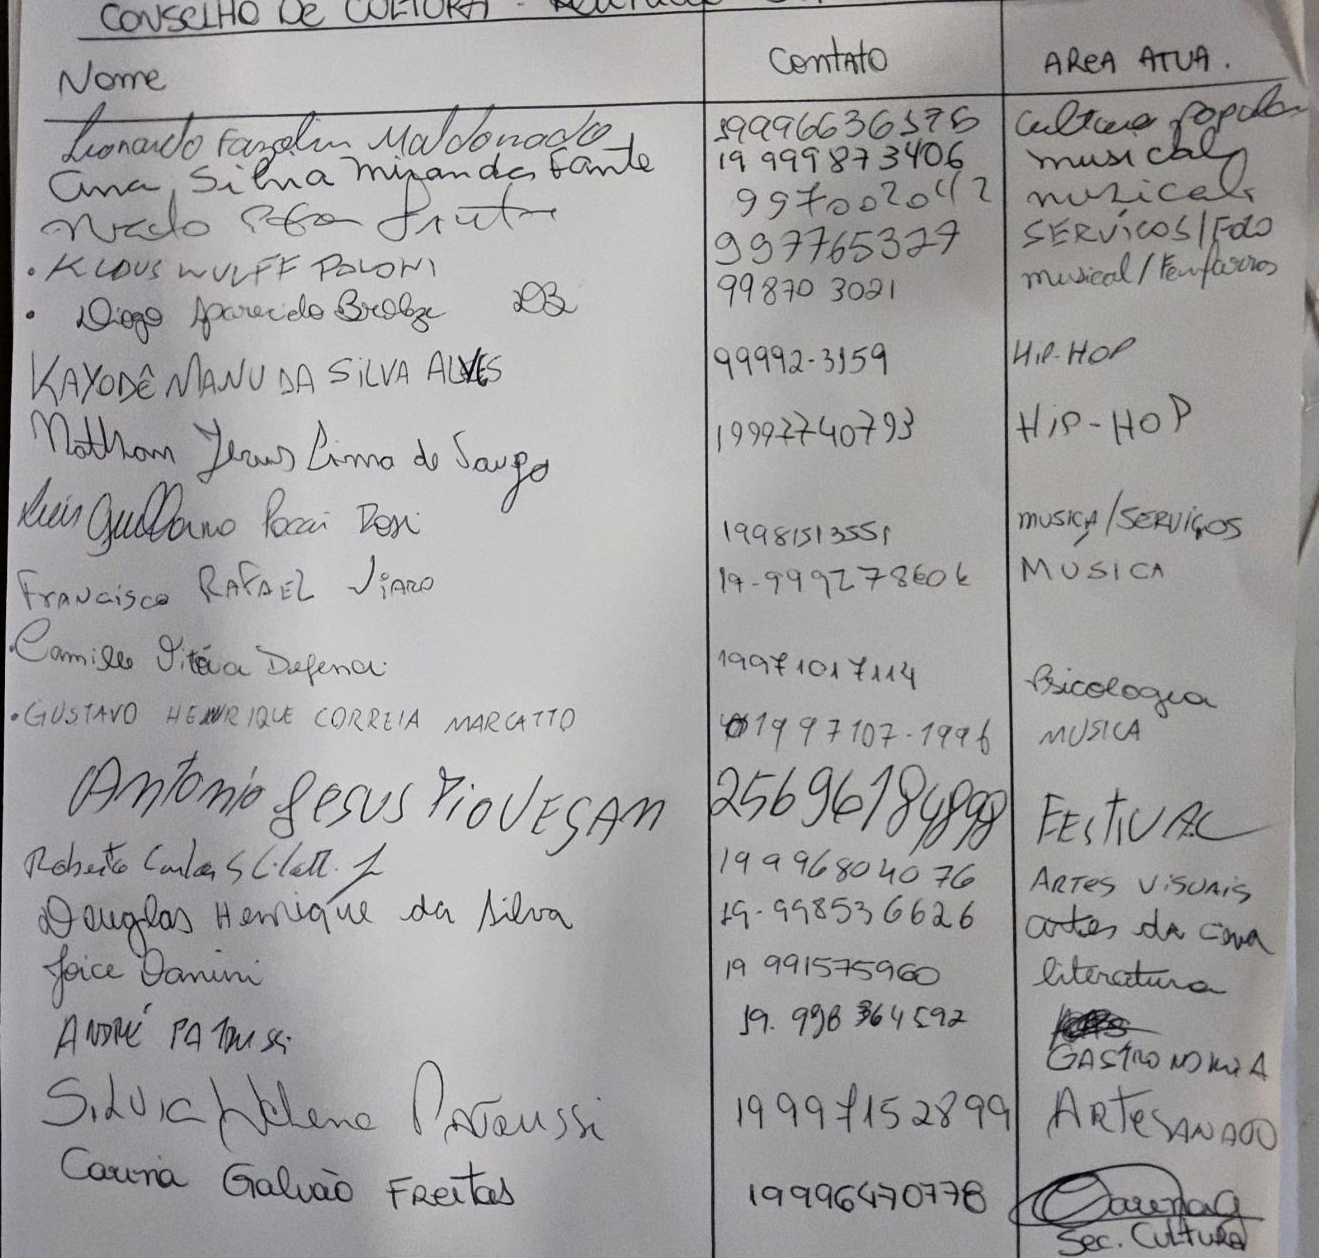 CONSELHO DE CULTURA -
Nome Contato AREA ATUA.
Leonardo Fazolin Maldonado 19996636575 Cultura popular
Ana Silvia Miranda Fante 19 999873406 musical
997002042 musical
KLAUS WULFF POLONI 997765327 SERVIÇOS/
Diogo Aparecido DB 99870 3021 musical/Fanfarras
KAYODÊ MANU DA SILVA ALVES 99992-3159 HIP-HOP
Nathan Jesus Lima de 19997740793 HIP-HOP
Luis Guilherme 19981513551 MUSICA/SERVIÇOS
FRANCISCO RAFAEL 19-999278606 MÚSICA
Camille Vitória 19971017114 Psicologia
GUSTAVO HENRIQUE CORREIA MARCATTO 19 97107-1996 MUSICA
Antonio Jesus PIOVESAN FESTIVAL
Roberto Carlos 19996804076 ARTES VISUAIS
Douglas Henrique da Silva 19-998536626 artes da cena
Joice Danini 19 991575960 literatura
ANDRÉ 19. 998 364592
GASTRONOMIA
SILVIA Helena 19997152899 ARTESANATO
Carina Galvão FREITAS 19996470778
Sec. Cultura